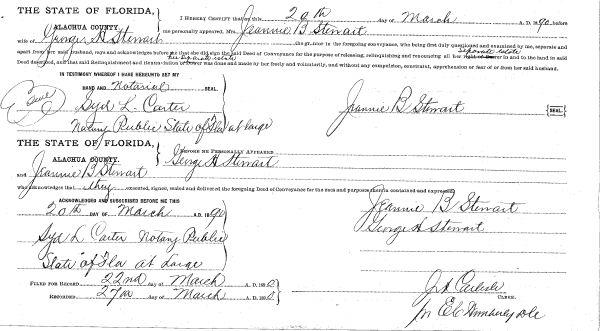 THE STATE OF FLORIDA,
ALACHUA COUNTY.
I HEREBY CERTIFY that on this 20th day of March A. D. 1890, before
me personally appeared, Mrs. Jeannie B Stewart
wife of George H Stewart the grantor in the foregoing conveyance, who being first duly questioned and examined by me, separate and
apart from her said husband, says and acknowledges before me that she did sign the said Deed of Conveyance for the purpose of releasing, relinquishing and renouncing all her right of Dower in and to the land in said
separate estate
Deed described, and that said Relinquishment and Renunciation of Dower was done and made by her freely and voluntarily, and without any compulsion, constraint, apprehension or fear of or from her said husband.
her separate estate
IN TESTIMONY WHEREOF I HAVE HEREUNTO SET MY
HAND AND Notarial SEAL.
Seal
Syd L. Carter
Jeannie B Stewart SEAL
Notary Public State of Fla at large
THE STATE OF FLORIDA,
ALACHUA COUNTY.
BEFORE ME PERSONALLY APPEARED
George H Stewart
and Jeannie B Stewart
who acknowledges that they executed, signed, sealed and delivered the foregoing Deed of Conveyance for the uses and purposes therein contained and expressed.
ACKNOWLEDGED AND SUBSCRIBED BEFORE ME THIS
20th DAY OF March A. D. 1890
Jeannie B Stewart
George H Stewart
Syd L Carter Notary Public
State of Fla at Large
FILED FOR RECORD 22nd day of March A. D. 1890
RECORDED 27th day of March A. D. 1890
Carlisle
CLERK.